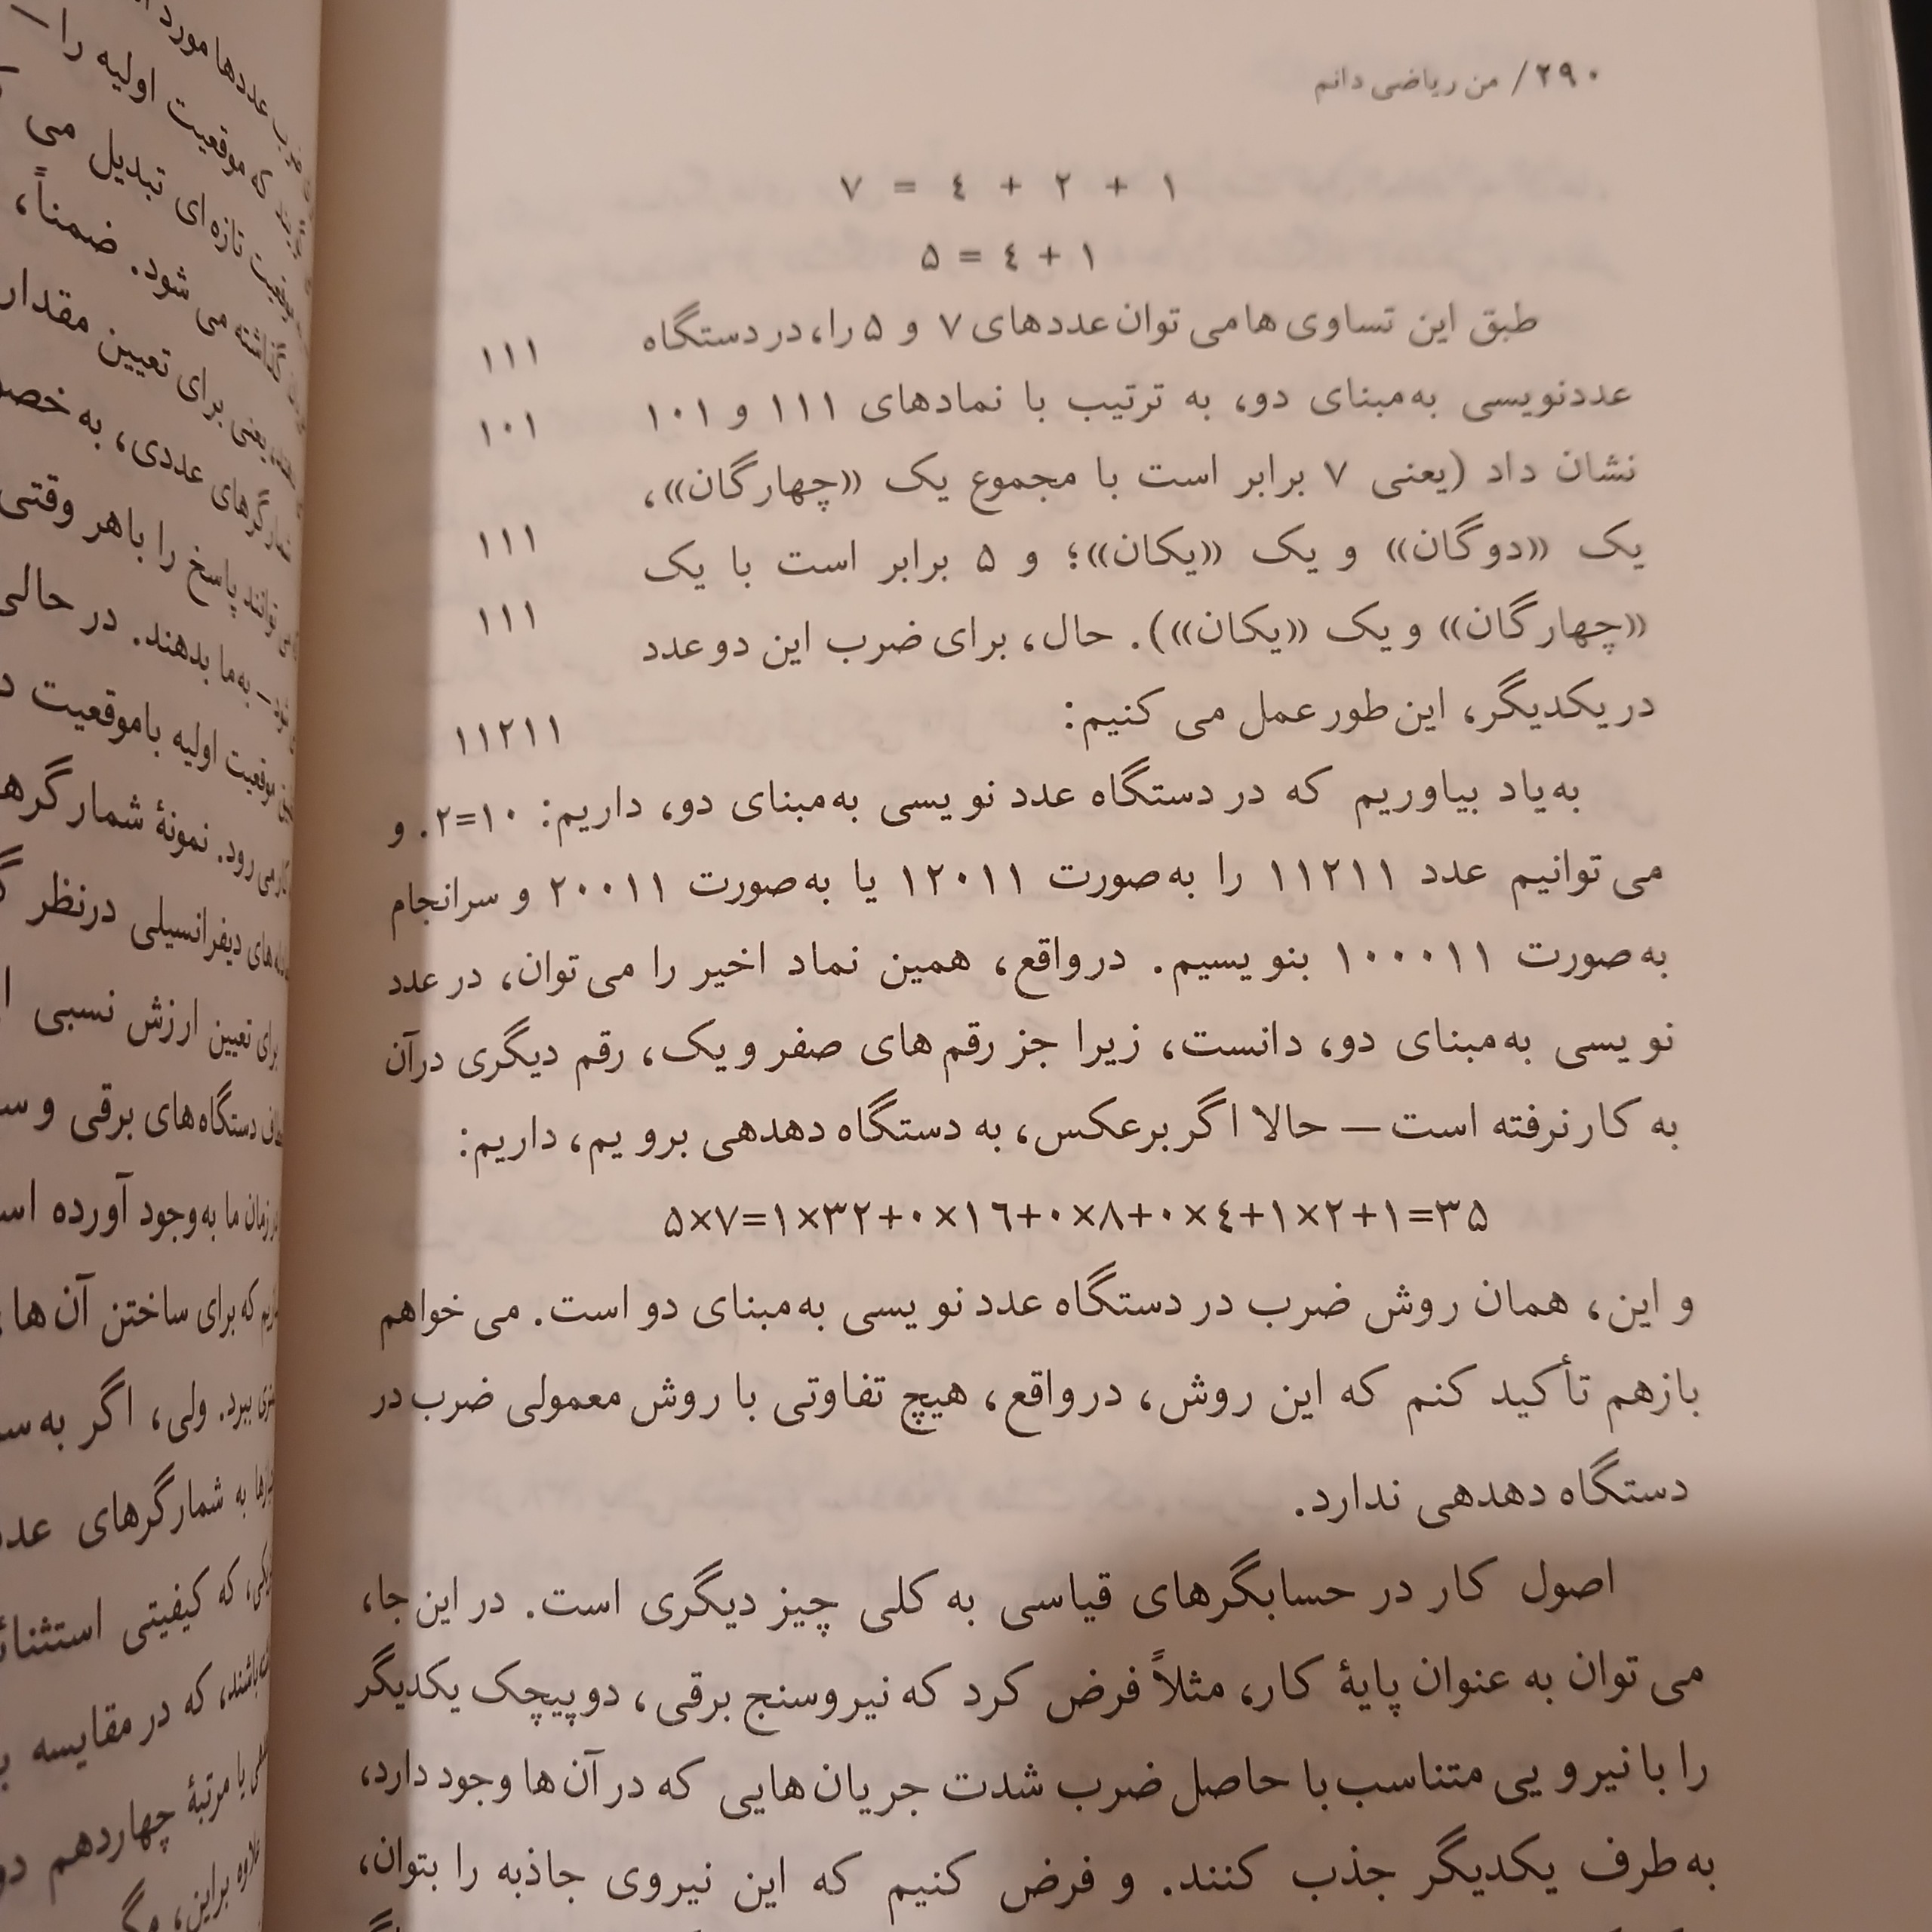 ۲۹۰/ من ریاضی دانم
۱ + ۲ + ٤ = ۷
۱ + ٤ = ۵
طبق این تساوی ها می توان عددهای ۷ و ۵ را، در دستگاه
عددنویسی به مبنای دو، به ترتیب با نمادهای ۱۱۱ و ۱۰۱
نشان داد (یعنی ۷ برابر است با مجموع یک «چهارگان»،
یک «دوگان» و یک «یکان»؛ و ۵ برابر است با یک
«چهارگان» و یک «یکان»). حال، برای ضرب این دو عدد
در یکدیگر، این طور عمل می کنیم:
۱۱۱
۱۰۱
۱۱۱
۱۱۱
۱۱۲۱۱
به یاد بیاوریم که در دستگاه عدد نویسی به مبنای دو، داریم: ۱۰=۲. و
می توانیم عدد ۱۱۲۱۱ را به صورت ۱۲۰۱۱ یا به صورت ۲۰۰۱۱ و سرانجام
به صورت ۱۰۰۰۱۱ بنویسیم. در واقع، همین نماد اخیر را می توان، در عدد
نویسی به مبنای دو، دانست، زیرا جز رقم های صفر و یک، رقم دیگری در آن
به کار نرفته است — حالا اگر برعکس، به دستگاه دهدهی برویم، داریم:
۵×۷=۱×۳۲+۰×۱٦+۰×۸+۰×٤+۱×۲+۱=۳۵
و این، همان روش ضرب در دستگاه عدد نویسی به مبنای دو است. می خواهم
بازهم تأکید کنم که این روش، در واقع، هیچ تفاوتی با روش معمولی ضرب در
دستگاه دهدهی ندارد.
اصول کار در حسابگرهای قیاسی به کلی چیز دیگری است. در این جا،
می توان به عنوان پایۀ کار، مثلاً فرض کرد که نیروسنج برقی، دو پیچک یکدیگر
را با نیرویی متناسب با حاصل ضرب شدت جریان هایی که در آن ها وجود دارد،
به طرف یکدیگر جذب کنند. و فرض کنیم که این نیروی جاذبه را بتوان،
عددها مورد
که موقعیت اولیه را —
تازه ای تبدیل می
گذاشته می شود. ضمناً،
یعنی برای تعیین مقدار
شمارگرهای عددی، به
توانند پاسخ را با هر وقتی
به ما بدهند. در حالی
موقعیت اولیه با موقعیت
می رود. نمونۀ شمارگر
های دیفرانسیلی در نظر
برای تعیین ارزش نسبی
دستگاه های برقی و
زمان ما به وجود آورده
که برای ساختن آن ها
ببرد. ولی، اگر به
به شمارگرهای
که کیفیتی
باشند، که در مقایسه
یا مرتبۀ چهاردهم
علاوه براین،